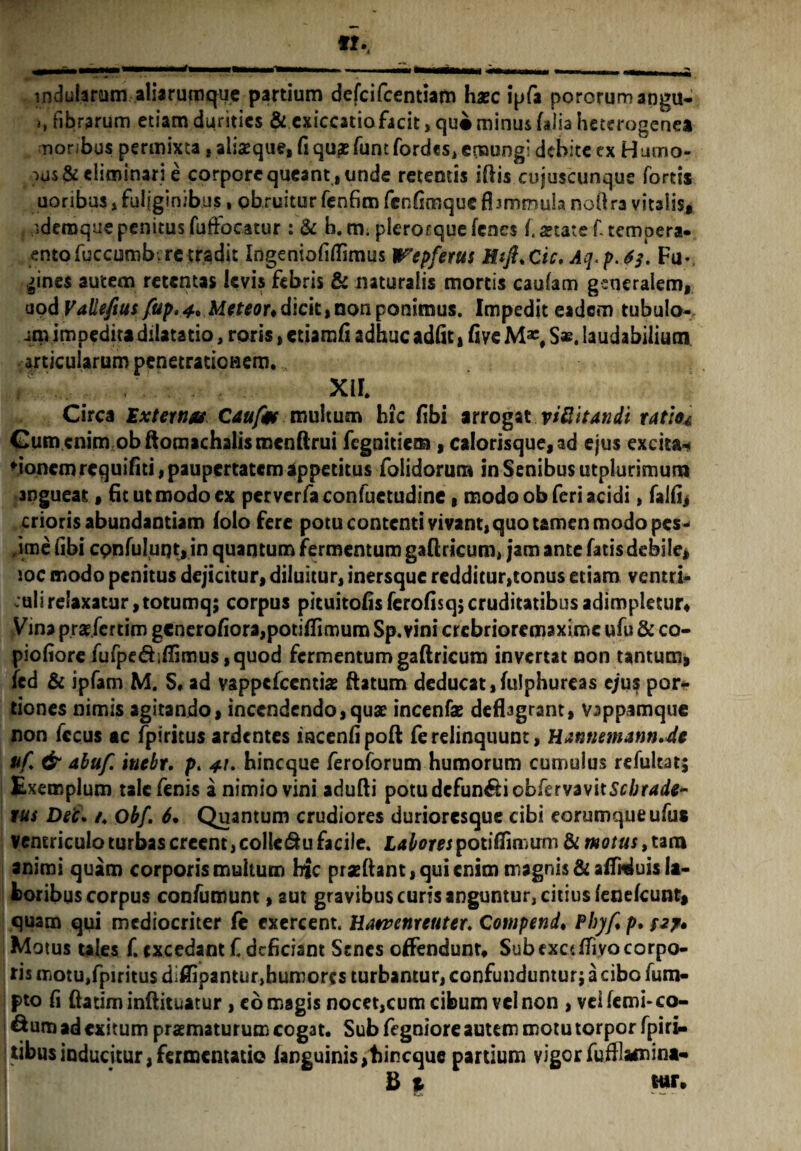 11.
indularum aliarumque partium defcifcentiam hæc ipfa pororum angu-
», fibrarum etiam durities & exiccatio facit, quò minus falia heterogenea
noribus permixta, aliæque, fi quæ funt fordes, emungi debite ex Humo-
ius & eliminari è corpore queant, unde retentis iftis cujuscunque fortis
uoribus, fuliginibus, obruitur fenfim fenfimque flammula noftra vitalis,
idemque penitus fuffocatur: & h. m. plerosque fenes f. ætate f. tempera-
ento fuccumbere tradit Ingeniofiffimus Wepferus Hist. Cic. Aq. p. 63. Fu-
gines autem retentas levis febris & naturalis mortis caufam generalem,
uod Vallefius fup. 4. Meteor. dicit, non ponimus. Impedit eadem tubulo-
im impedita dilatatio, roris, etiamfi adhuc adfit, five Mæ, Sæ. laudabilium
articularum penetrationem.
XII.
Circa Externas Caufas multum hîc fibi arrogat victitandi ratio.
Cum enim ob ftomachalis menftrui fegnitiem, calorisque, ad ejus excita-
tionem requifiti, paupertatem appetitus folidorum in Senibus utplurimum
angueat, fit ut modo ex perverfa confuetudine, modo ob feri acidi, falfi,
crioris abundantiam folo fere potu contenti vivant, quo tamen modo pes-
ime fibi confulunt, in quantum fermentum gaftricum, jam ante fatis debile,
hoc modo penitus dejicitur, diluitur, inersque redditur, tonus etiam ventri-
culi relaxatur, totumq; corpus pituitofis ferofisq; cruditatibus adimpletur.
Vina præfertim generofiora, potiffimum Sp. vini crebriore maxime ufu & co-
piofiore fufpectiffimus, quod fermentum gaftricum invertat non tantum,
fed & ipfam M. S. ad vappefcentiæ ftatum deducat, fulphureas ejus por-
tiones nimis agitando, incendendo, quæ incenfæ deflagrant, vappamque
non fecus ac fpiritus ardentes incenfi poft fe relinquunt, Hannemann. de
uf. & abuf. inebr. p. 41. hincque feroforum humorum cumulus refultat;
Exemplum tale fenis à nimio vini adufti potu defuncti obfervavit Schrade-
rus Dec. 1. Obf. 6. Quantum crudiores durioresque cibi eorumque ufus
ventriculo turbas creent, collectu facile. Labores potiffimum & motus, tam
animi quàm corporis multum hîc præftant, qui enim magnis & affiduis la-
boribus corpus confumunt, aut gravibus curis anguntur, citius fenefcunt,
quam qui mediocriter fe exercent. Hawenreuter. Compend. Phyf. p. 527.
Motus tales f. excedant f. deficiant Senes offendunt. Sub exceffivo corpo-
ris motu, fpiritus diffipantur, humores turbantur, confunduntur; à cibo fum-
pto fi ftatim inftituatur, eò magis nocet, cum cibum vel non, vel femi-co-
ctum ad exitum præmaturum cogat. Sub fegniore autem motu torpor fpiri-
tibus inducitur, fermentatio fanguinis, hincque partium vigor fufflamina-
B 2 tur.